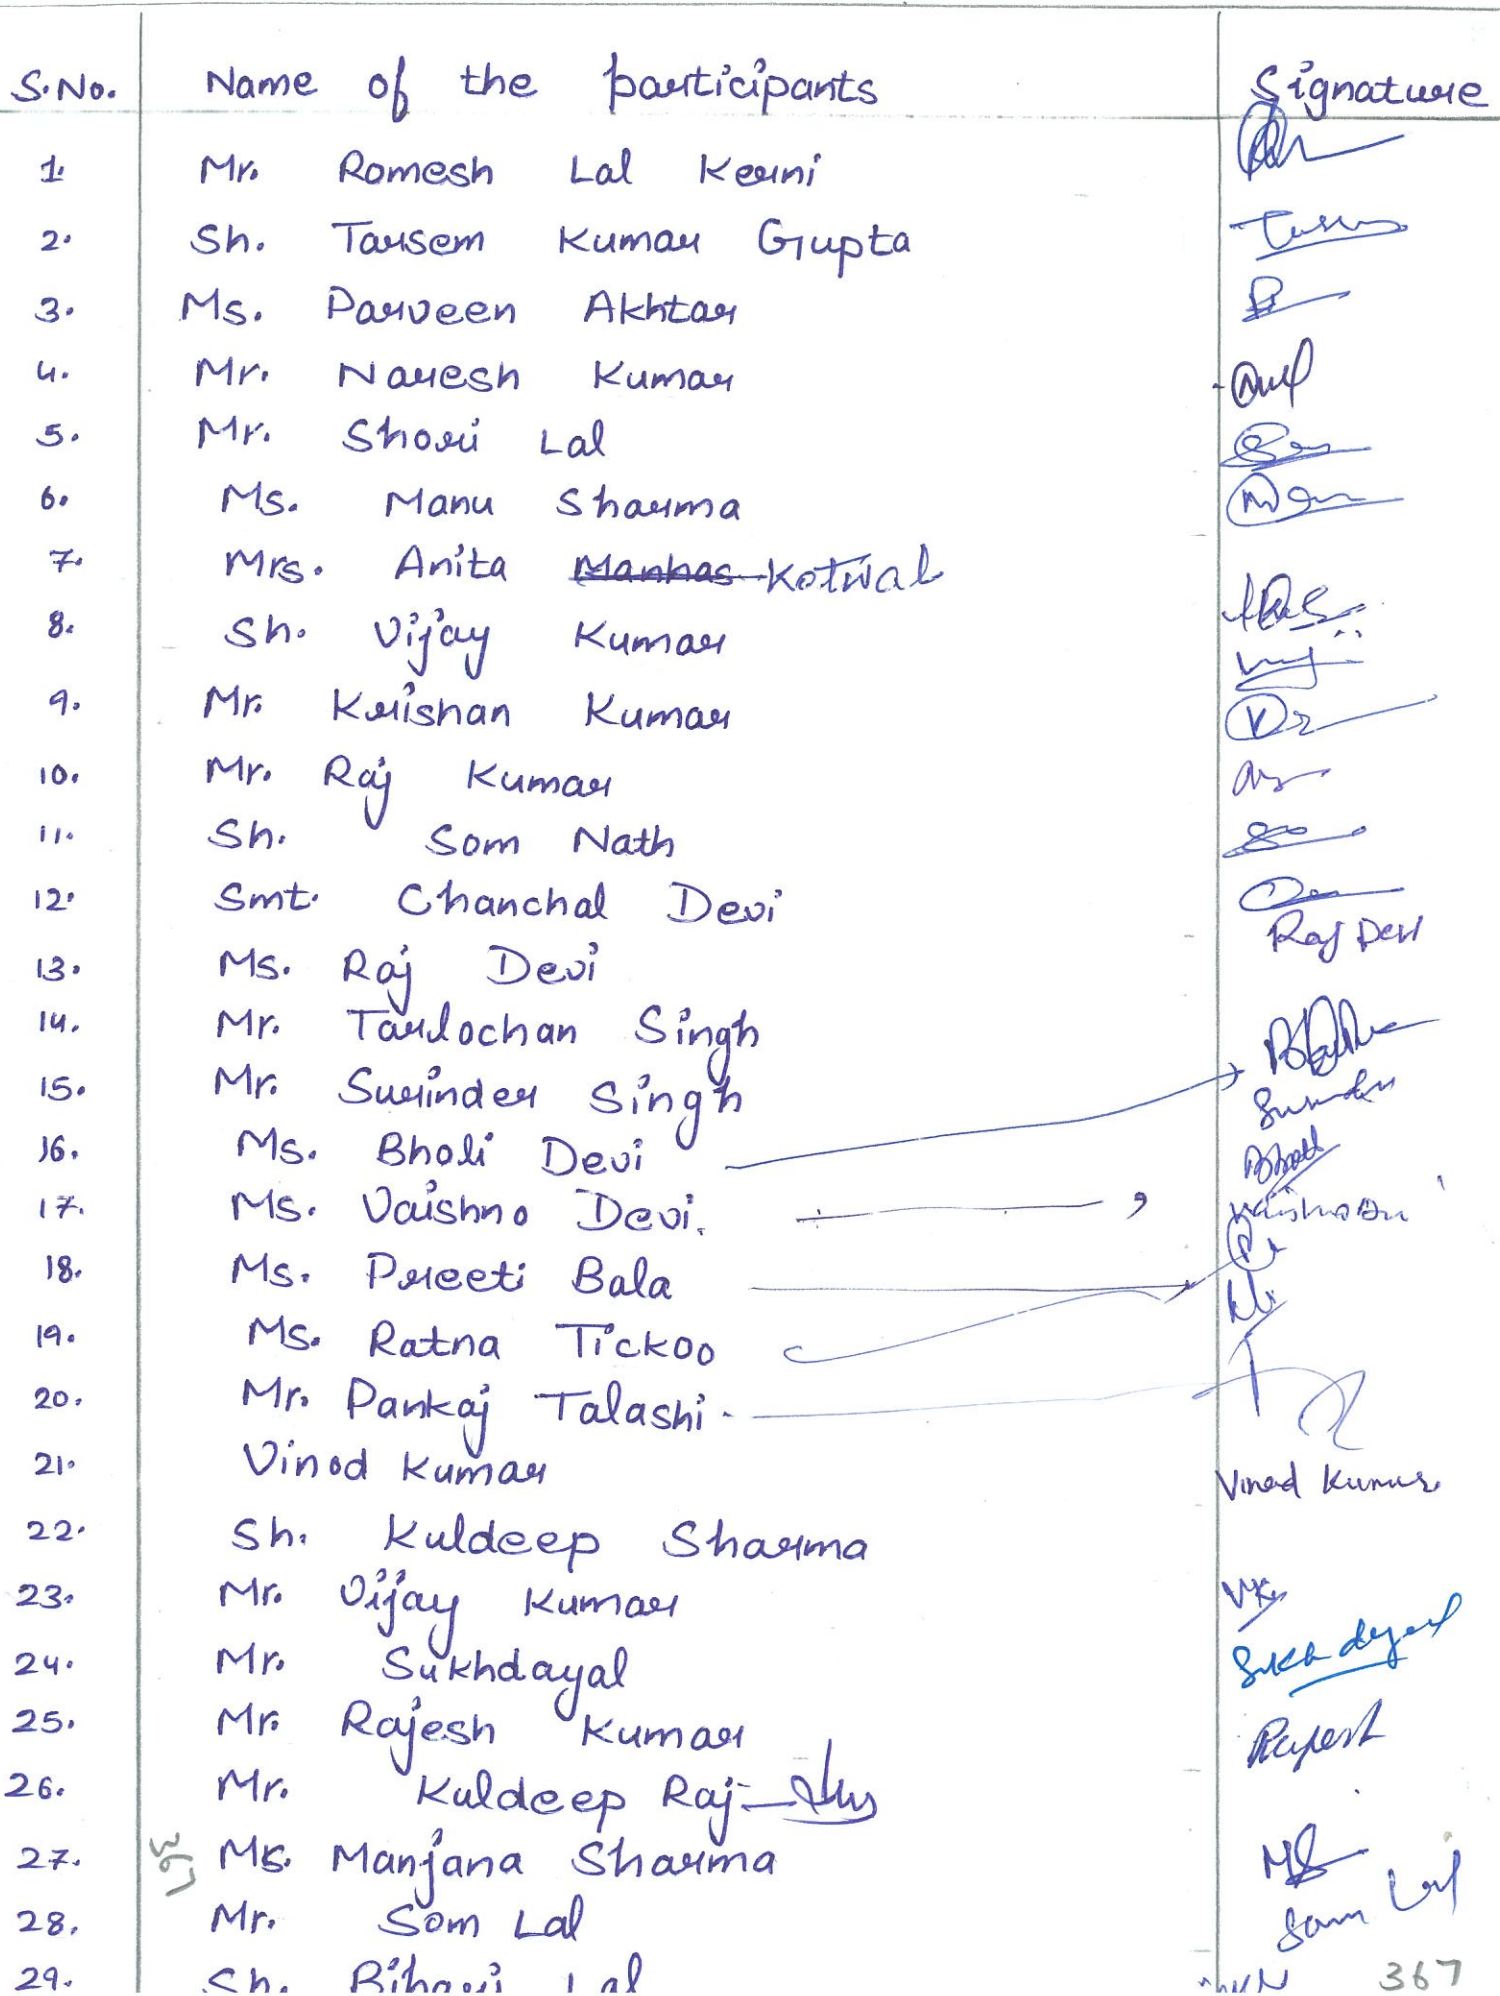 S.No. Name of the participants Signature
1. Mr. Romesh Lal Kerni
2. Sh. Tarsem Kumar Gupta
3. Ms. Parveen Akhtar
4. Mr. Naresh Kumar
5. Mr. Shori Lal
6. Ms. Manu Sharma
7. Mrs. Anita Manhas Kotwal
8. Sh. Vijay Kumar
9. Mr. Krishan Kumar
10. Mr. Raj Kumar
11. Sh. Som Nath
12. Smt. Chanchal Devi
13. Ms. Raj Devi Raj Devi
14. Mr. Tarlochan Singh
15. Mr. Surinder Singh
16. Ms. Bholi Devi
17. Ms. Vaishno Devi.
18. Ms. Preeti Bala
19. Ms. Ratna Tickoo
20. Mr. Pankaj Talashi
21. Vinod Kumar Vinod Kumar
22. Sh. Kuldeep Sharma
23. Mr. Vijay Kumar VK
24. Mr. Sukhdayal Sukh dayal
25. Mr. Rajesh Kumar Rajesh
26. Mr. Kuldeep Raj
27. Ms. Manjana Sharma MS
28. Mr. Som Lal Som Lal
29. Sh. Bihari Lal
367